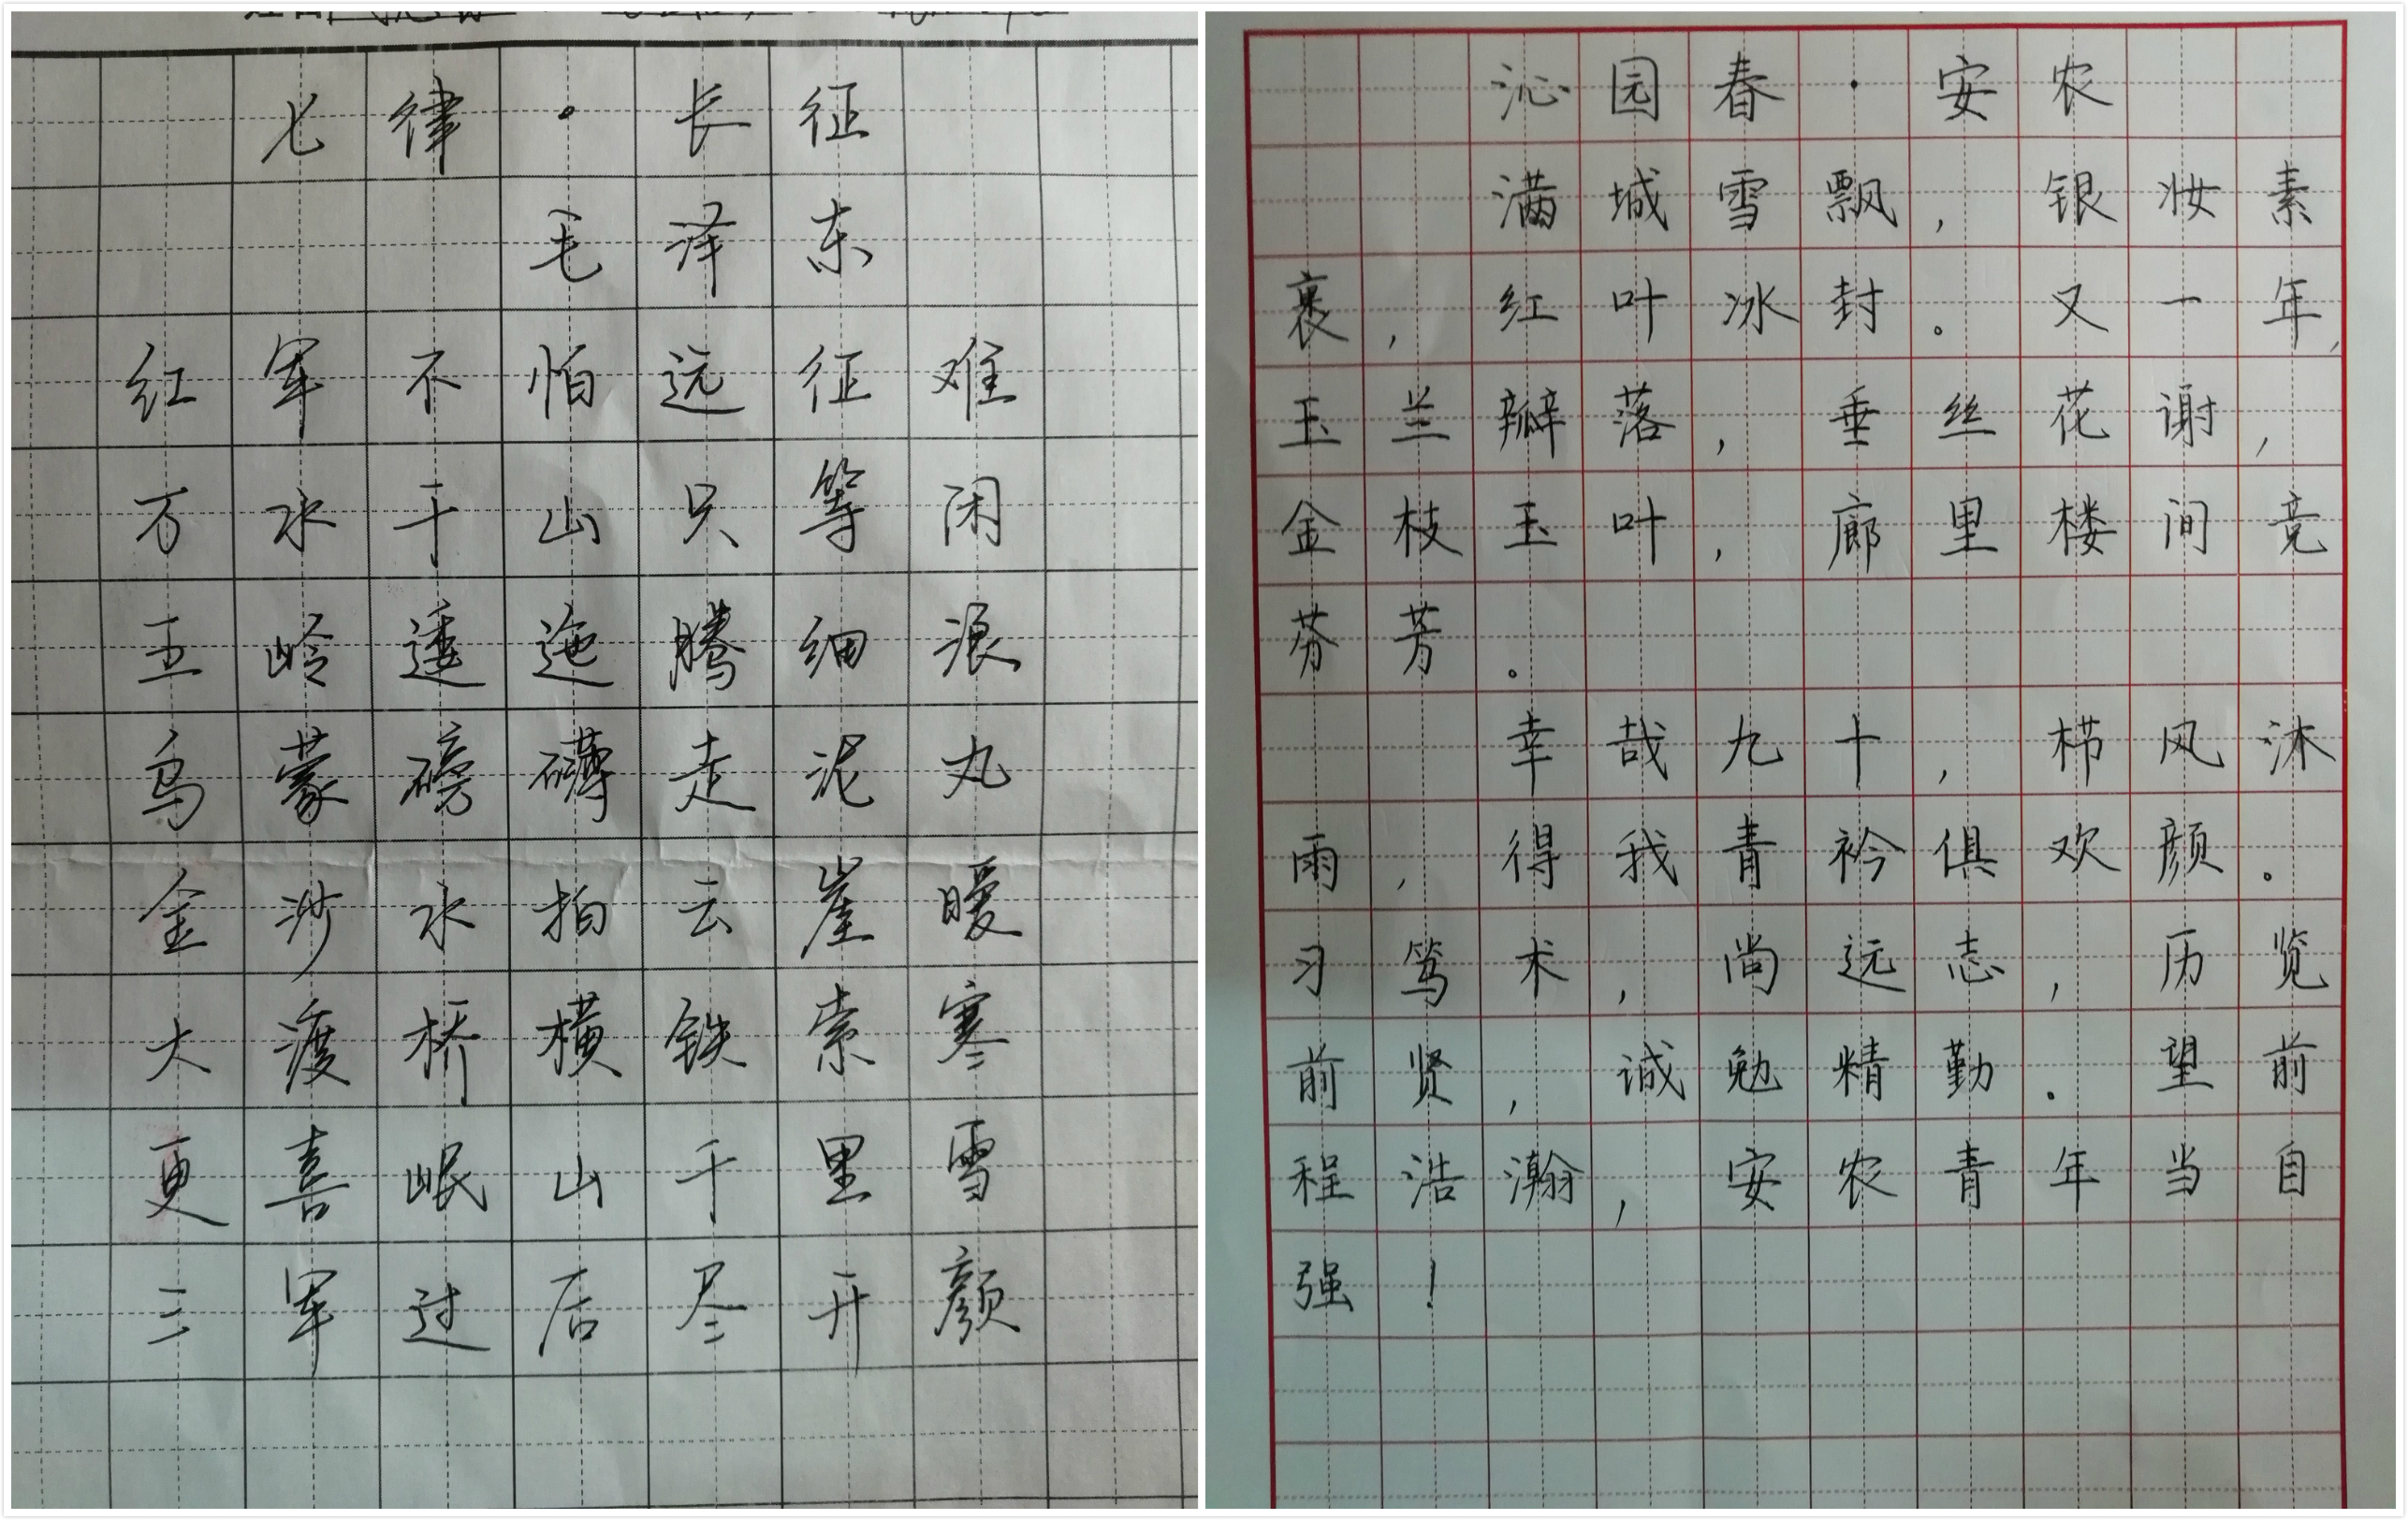 七律·长征
毛泽东
红军不怕远征难
万水千山只等闲
五岭逶迤腾细浪
乌蒙磅礴走泥丸
金沙水拍云崖暖
大渡桥横铁索寒
更喜岷山千里雪
三军过后尽开颜
沁园春·安农
满城雪飘，银妆素
裹，红叶冰封。又一年，
玉兰瓣落，垂丝花谢，
金枝玉叶，廊里楼间竞
芬芳。
幸哉九十，栉风沐
雨，得我青衿俱欢颜。
习笃术，尚远志，历览
前贤，诚勉精勤。望前
程浩瀚，安农青年当自
强！